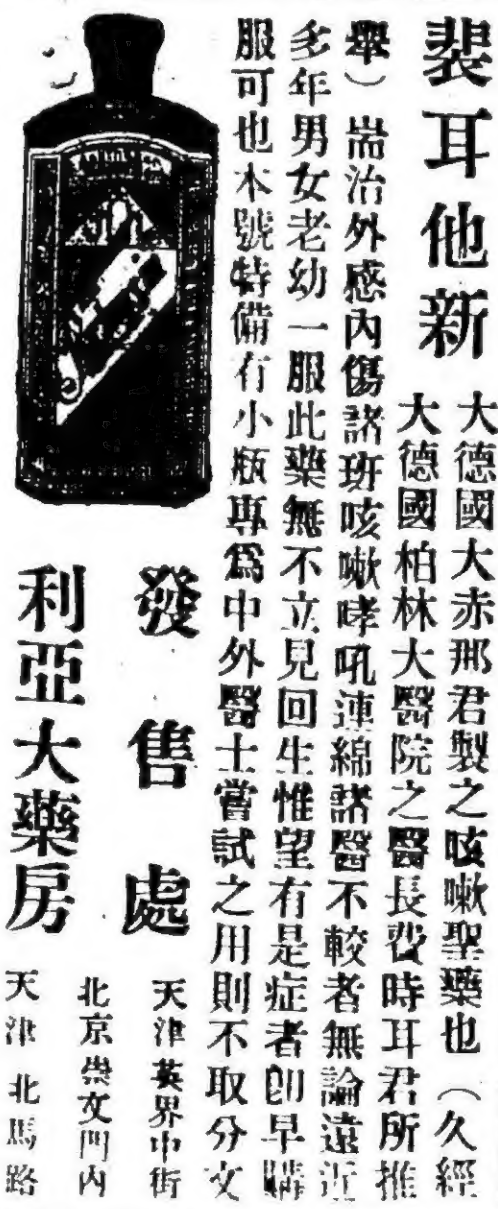 裴耳他新
大德國大赤那君製之咳嗽聖藥也（久經
大德國柏林大醫院之醫長費時耳君所推
舉）耑治外感內傷諸班咳嗽哮吼連綿諸醫不較者無論遠近
多年男女老幼一服此藥無不立見回生惟望有是症者卽早購
服可也本號特備有小瓶專爲中外醫士嘗試之用則不取分文
發售處
利亞大藥房
天津英界中街
北京崇文門內
天津北馬路